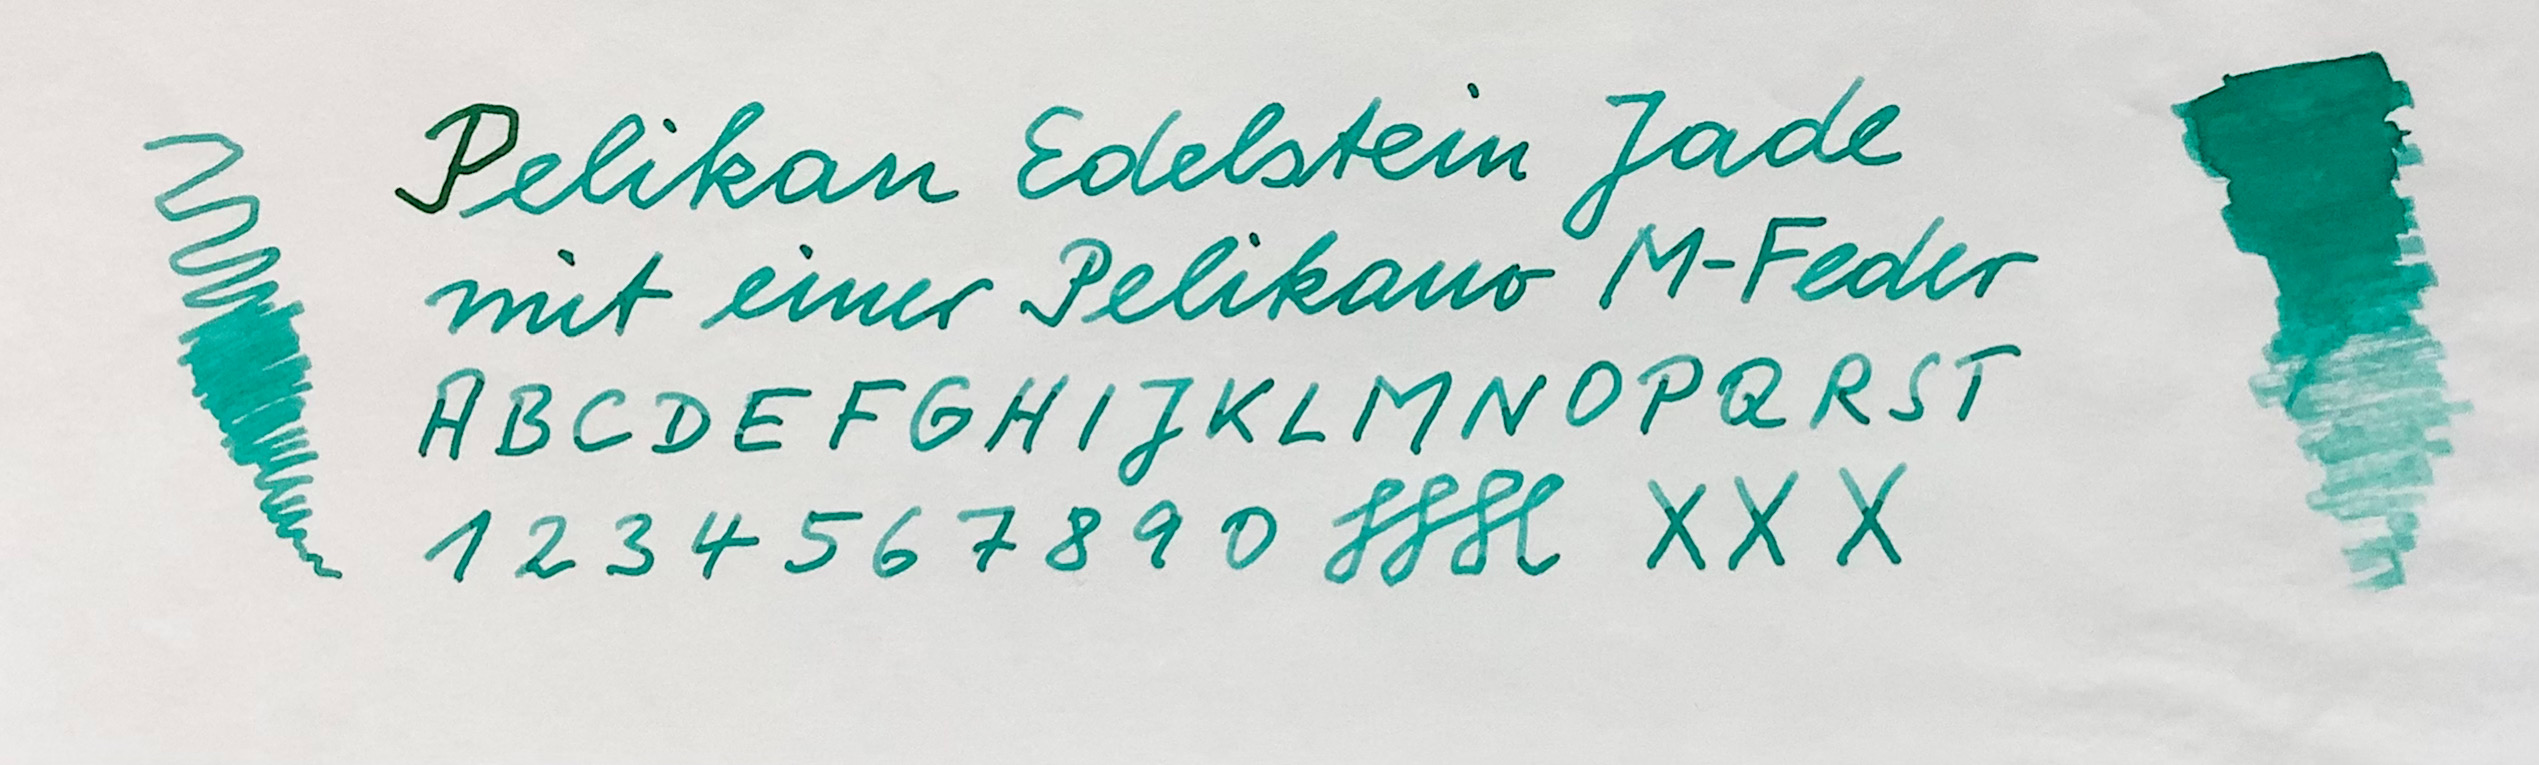 Pelikan Edelstein Jade
mit einer Pelikano M-Feder
A B C D E F G H I J K L M N O P Q R S T
1 2 3 4 5 6 7 8 9 0 X X X